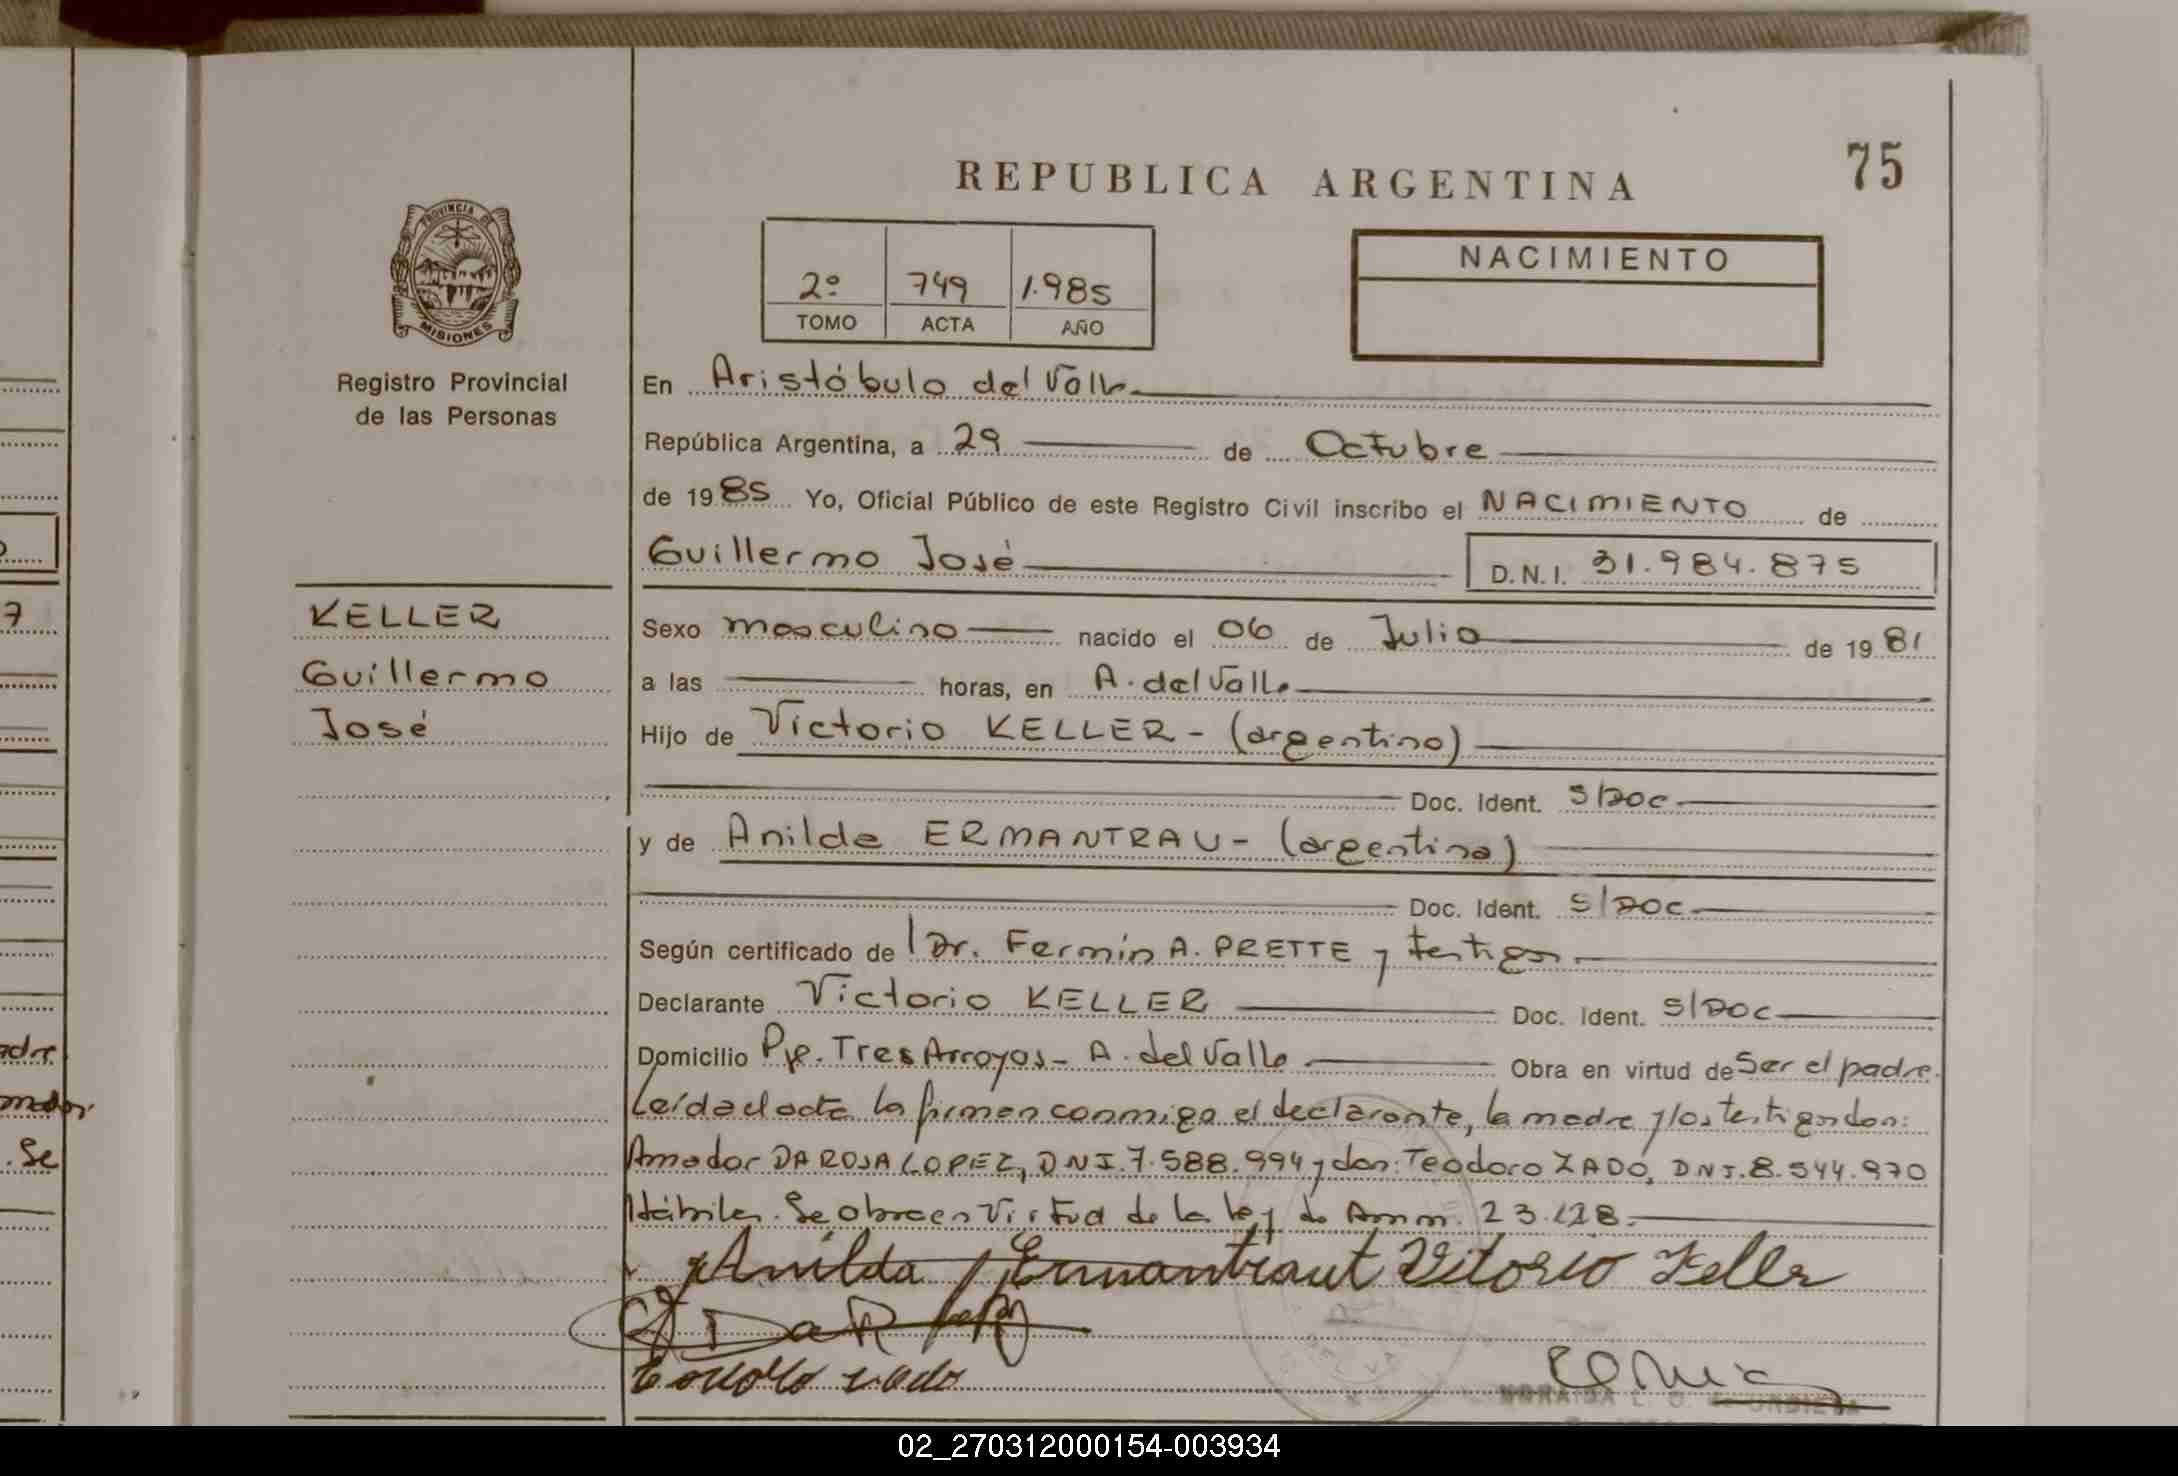 REPUBLICA ARGENTINA
75
PROVINCIA DE
MISIONES
Registro Provincial
de las Personas
2º 749 1.985
TOMO ACTA AÑO
NACIMIENTO
En Aristóbulo del Valle
República Argentina, a 29 de Octubre
de 1985 Yo, Oficial Público de este Registro Civil inscribo el NACIMIENTO de
Guillermo José D.N.I. 31.984.875
KELLER
Guillermo
José
Sexo masculino nacido el 06 de Julio de 1981
a las horas, en A. del Valle
Hijo de Victorio KELLER - (argentino)
Doc. Ident. S/DOC
y de Anilda ERMANTRAU - (argentina)
Doc. Ident. S/DOC
Según certificado de Dr. Fermín A. PRETTE y testigos
Declarante Victorio KELLER Doc. Ident. S/DOC
Domicilio Pje. Tres Arroyos - A. del Valle Obra en virtud de Ser el padre.
Leída el acta la firman conmigo el declarante, la madre y los testigos don:
Amador DA ROSA LOPEZ, DNI. 7.588.994 y don: Teodoro ZADO, DNI. 8.544.970
Hábiles. Se obra en Virtud de la Ley de Amn. 23.128.
Anilda Ermantraut Vitorio Keller
7
adre
. Se
02_270312000154-003934